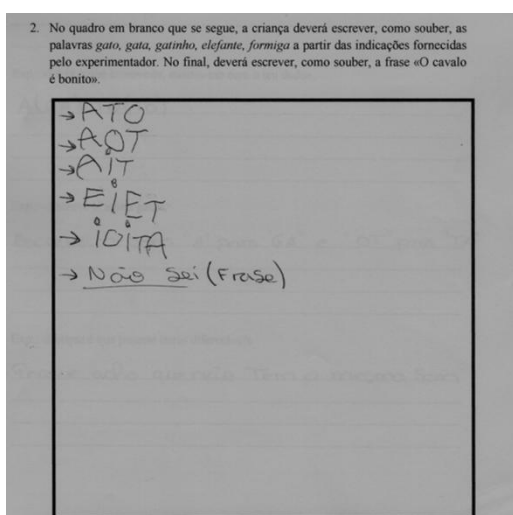 2. No quadro em branco que se segue, a criança deverá escrever, como souber, as
palavras gato, gata, gatinho, elefante, formiga a partir das indicações fornecidas
pelo experimentador. No final, deverá escrever, como souber, a frase «O cavalo
é bonito».
→ ATO
→ AOT
→ AIT
→ EIET
→ IOITA
→ Não sei (Frase)